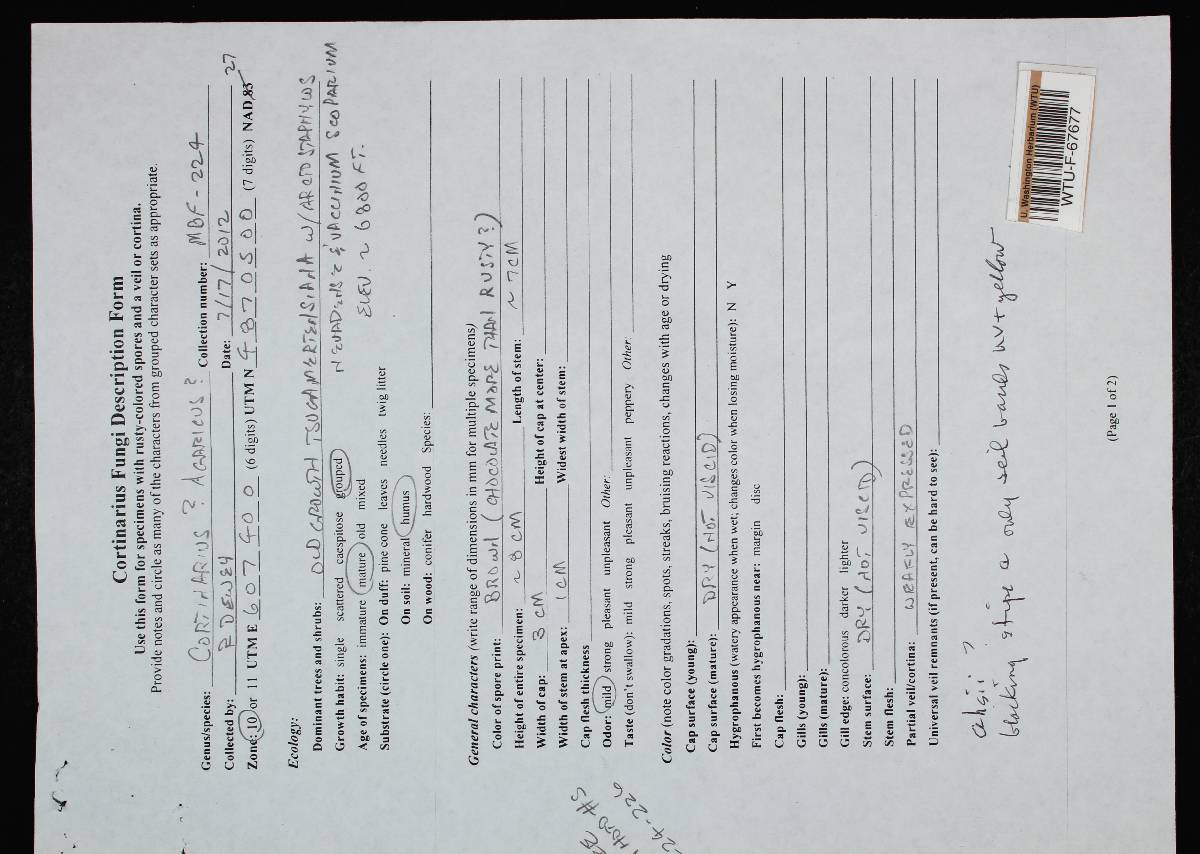 Cortinarius Fungi Description Form
Use this form for specimens with rusty-colored spores and a veil or cortina.
Provide notes and circle as many of the characters from grouped character sets as appropriate.
Genus/species: CORTINARIUS ? AGARICUS? Collection number: MBF-224
Collected by: R DEWEY Date: 7/17/2012
Zone: 10 or 11 UTM E 607400 (6 digits) UTM N 4870500 (7 digits) NAD 83 27
Ecology:
Dominant trees and shrubs: OLD GROWTH TSUGA MERTENSIANA W/ ARCTOSTAPHYLOS
NEVADENSIS & VACCINIUM SCOPARIUM
Growth habit: single scattered caespitose grouped
ELEV. ~ 6800 FT.
Age of specimens: immature mature old mixed
Substrate (circle one): On duff: pine cone leaves needles twig litter
On soil: mineral humus
On wood: conifer hardwood Species:
General characters (write range of dimensions in mm for multiple specimens)
Color of spore print: BROWN (CHOCOLATE MORE THAN RUSTY?)
Height of entire specimen: ~ 8 CM Length of stem: ~ 7CM
Width of cap: 3 CM Height of cap at center:
Width of stem at apex: 1CM Widest width of stem:
Cap flesh thickness
Odor: mild strong pleasant unpleasant Other:
Taste (don't swallow): mild strong pleasant unpleasant peppery Other:
Color (note color gradations, spots, streaks, bruising reactions, changes with age or drying
Cap surface (young):
Cap surface (mature): DRY (NOT VISCID)
Hygrophanous (watery appearance when wet; changes color when losing moisture): N Y
First becomes hygrophanous near: margin disc
Cap flesh:
Gills (young):
Gills (mature):
Gill edge: concolorous darker lighter
Stem surface: DRY (NOT VISCID)
Stem flesh:
Partial veil/cortina: WEAKLY EXPRESSED
Universal veil remnants (if present, can be hard to see):
ahsii ?
stipe a only veil bands uv+ yellow
(Page 1 of 2)
#S
24-226
U. Washington Herbarium (WTU)
WTU-F-67677